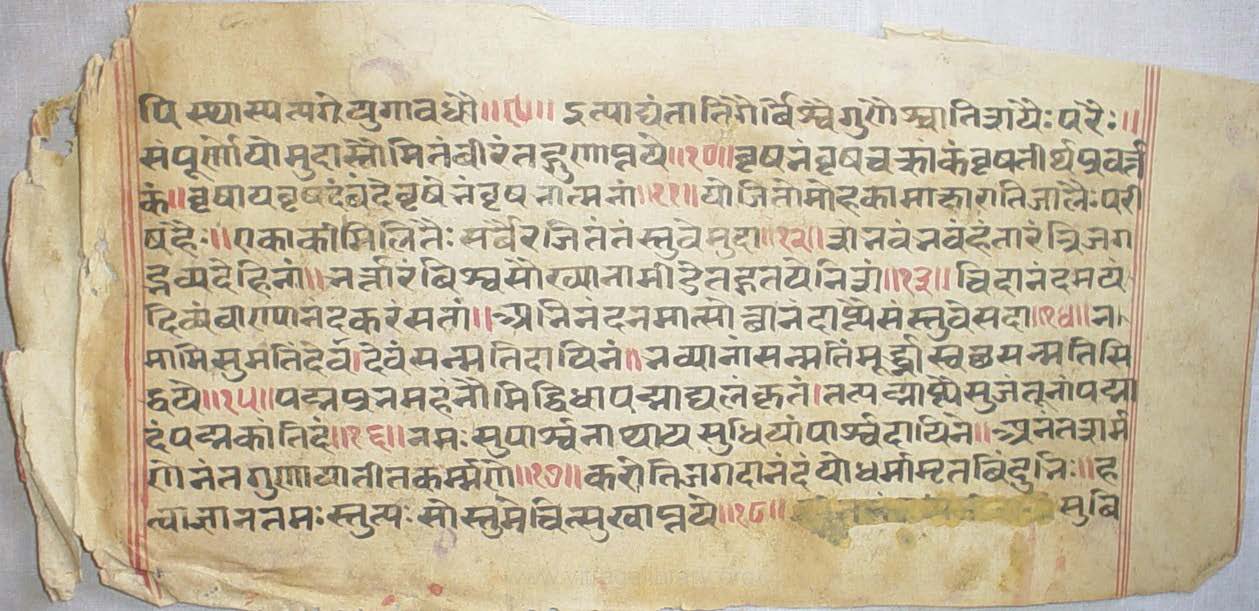 पि स्थास्पत्यगे युगावधौ॥९॥ इत्याद्यंतातिगैर्विश्वैगुणैश्चातिशयैः परैः॥
संपूर्णो यो मुदा स्तौमि तं वीरं तद्गुणाप्तये॥१०॥ वृषभं वृषचक्रांकं वृषतीर्थप्रवर्त्त
कं॥ वृषाय वृषदं वंदे वृषभं वृषभात्मनां॥११॥ यो जितो मोहकामाक्षारातिजालैः परी
षहैः॥ एकाकी मिलितैः सर्वैरजितं तं स्तुवे मुदा॥१२॥ शंभवं भवहंतारं त्रिजग
द्भव्यदेहिनां॥ भर्त्तारं विश्वसौख्यानामीडे तद्गतये निशं॥१३॥ चिदानंदमयं
दिव्यवाण्यानंदकरं सतां॥ अभिनंदनमात्मोत्थानंदाप्त्यै संस्तुवे सदा॥१४॥ न
मामि सुमतिं देवं। देवं सन्मतिदायिनं॥ भव्यानां सन्मतिं मूर्द्ध्ना स्वच्छसन्मतिसि
द्धये॥१५॥ पद्मप्रभमहं नौमि द्विधापद्माद्यलंकृतं। तत्पद्माप्त्यै सुजंतूनां पद्मा
दं पद्मकांतिदं॥१६॥ नमः सुपार्श्वनाथाय सुधियां पार्श्वदायिने॥ अनंतशर्म
णेनंतगुणायातीतकर्म्मणे॥१७॥ करोति जगदानंदं यो धर्मामृतबिंदुभिः॥ ह
त्वाज्ञानतमः स्तुत्यः सोस्तु मे चित्सुखाप्तये॥१८॥ सुवि